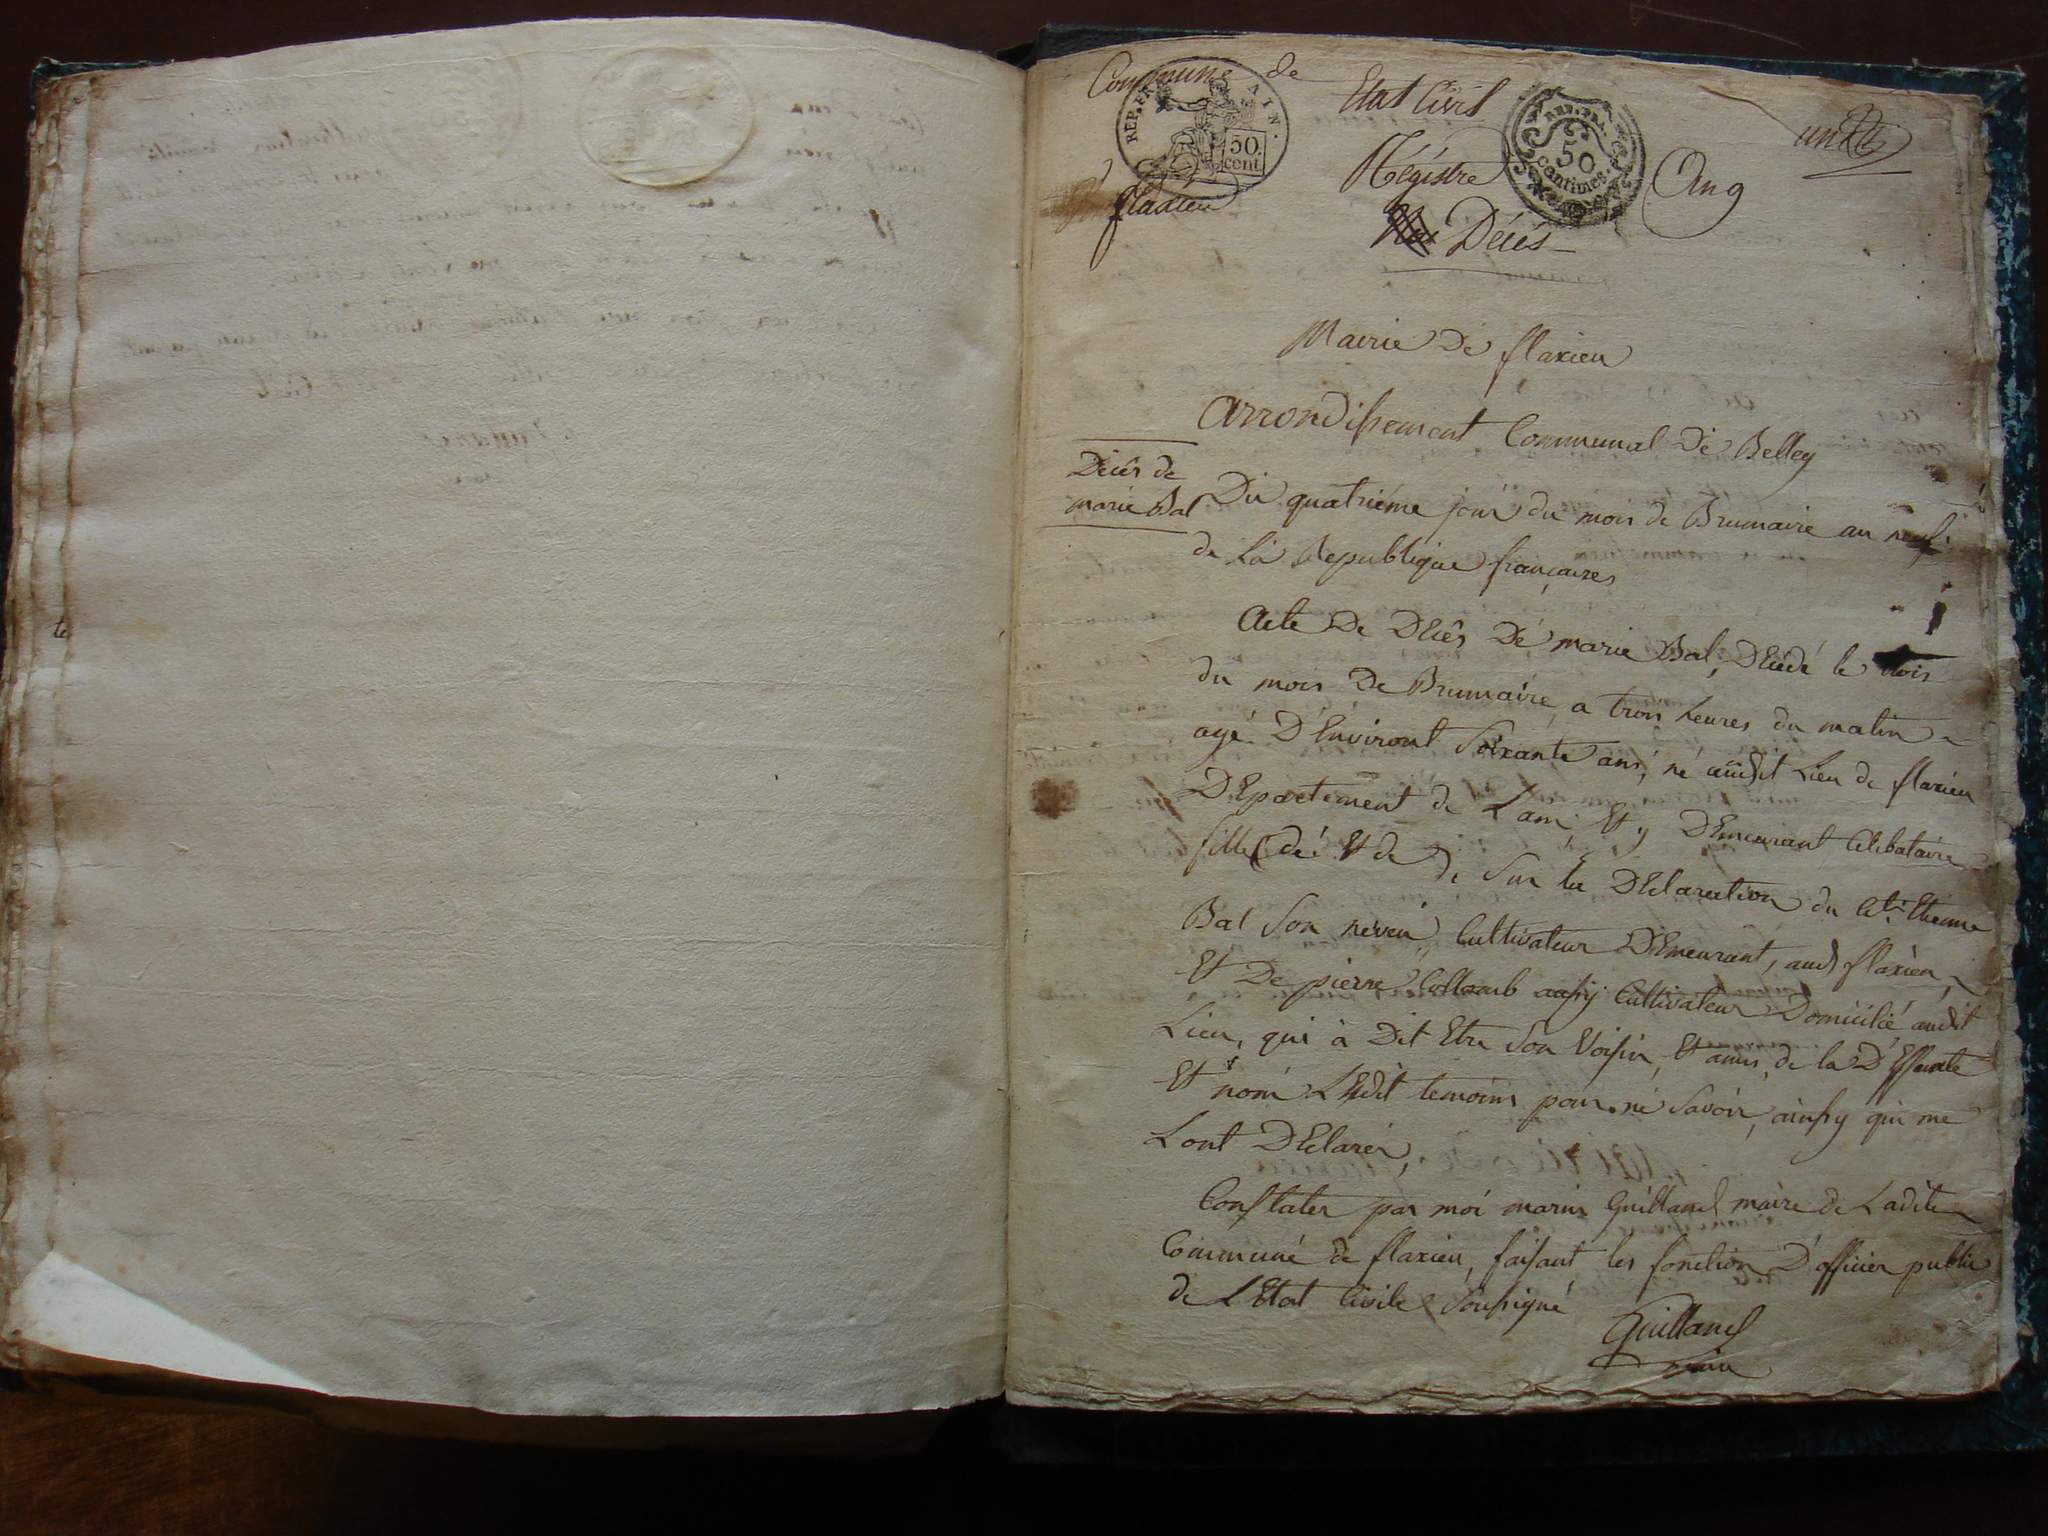 Commune de
flaxieu
REP. FRA. AIN.
50.
cent
Etat Civil
Régistre
Décés
REP. FRA.
50
centimes.
An 9
un
Mairie De flaxieu
Arrondissement Communal De Belley
Décès de
marie Bal
Du quatriéme jour du mois de Brumaire an neuf
de La Republique françaises
Acte De DEcês Dé marie Bal, DEcédé le trois
du mois De Brumaire, a trois heures du matin
agé D'Environt Soixante ans, né audit Lieu de flaxieu
DEpartement de Lain, Et y DEmeurant Celibataire
fille (de Et de ), Sur la DEclaration du Cit. Etienne
Bal Son neveu, Cultivateur DEmeurant, aud flaxieu,
Et De pierre Collomb aussy Cultivateur Domicilié audit
Lieu, qui à Dit Etre Son Voisin, Et amis, de la D'Effunte
Et nom LEdit temoins pour né Savoir, ainssy qui me
Lont DEclarer,
Constater par moi marin Guilland maire de Ladite
Commune de flaxieu, faisant les fonction D'officier public
de LEtat Civile Soussigné
Guilland
maire